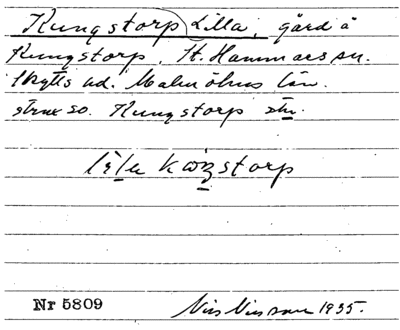 Kungstorp Lilla, gård å
Kungstorp, St. Hammars sn.
Skytts hd. Malmöhus län.
strax so. Kungstorp stn.
lila kɷŋstorp
Nr 5809
Nils Nilsson 1935.